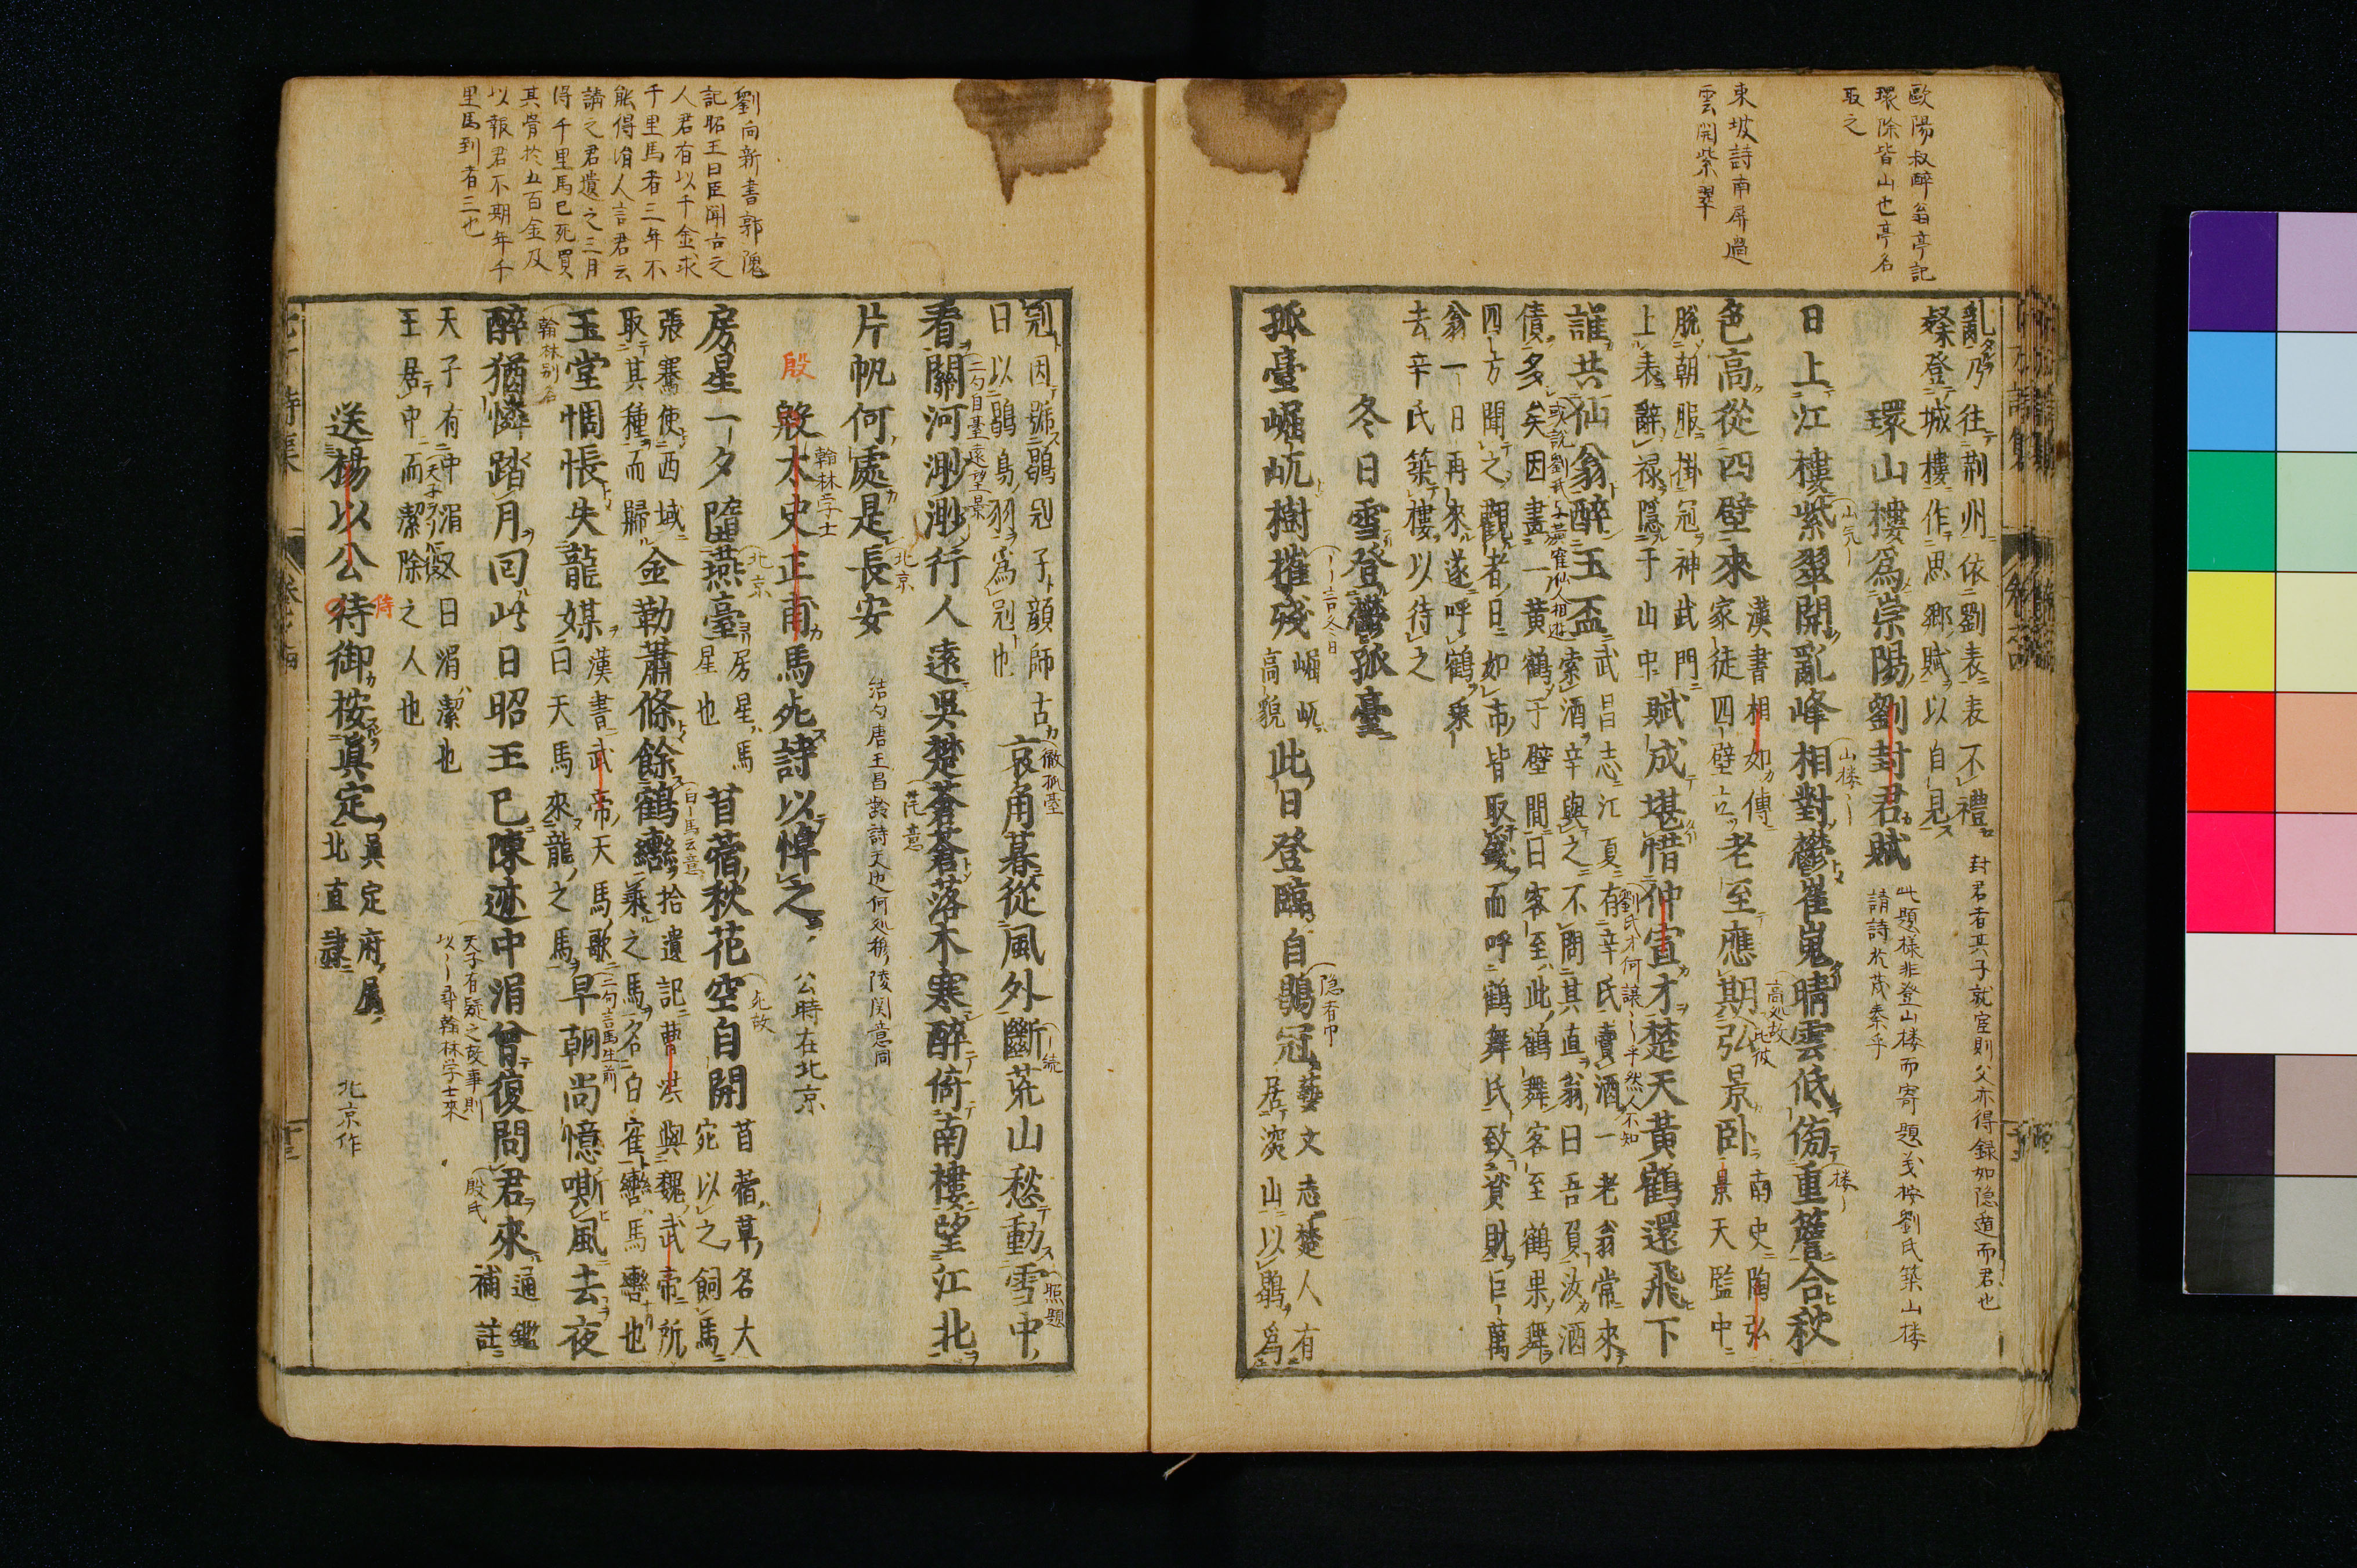 歐陽叔醉翁亭記
環除皆山也亭名
取之
東坡詩南屏過
雲開紫翠
亂乃往荊州依劉表表不禮
封君者其子就宦則父亦得録如隠遁而君也
粲登城樓作思郷賦以自見
環山樓爲崇陽劉封君賦
此題様非登山楼而寄題義按劉氏築山楼
請詩於茂秦乎
日上江樓紫翠開亂峰相對鬱崔嵬晴雲低傍重簷合秋
色高從四壁來
漢書相如傳
家徒四壁立
老至應期弘景卧
南史陶弘
景天監中
脱朝服掛冠神武門
上表辭禄隱于山中
賦成堪惜仲宣才楚天黃鶴還飛下
誰共仙翁醉玉盃
武昌志江夏有辛氏賣酒一老翁常來
索酒辛與之不問其直翁曰吾負汝酒
債多矣因畫一黄鶴于壁間曰客至此鶴舞客至鶴果舞
四方聞之觀者日如市皆取錢而呼鶴舞氏致資財巨萬
翁一日再來遂呼鶴乗
去辛氏築樓以待之
冬日雪登鬱孤臺
孤臺崛屼樹摧殘
崛屼
高貌
此日登臨自鶡冠
藝文志楚人有
居深山以鶡爲
冠因號鶡冠子顔師古
日以鶡鳥羽爲冠也
哀角暮從風外斷荒山愁動雪中
看關河渺渺行人遠吳楚蒼蒼落木寒醉倚南樓望江北
片帆何處是長安
結句唐王昌齡詩天邊何処穆陵関意同
殷太史正甫馬死詩以悼之
公時在北京
房星一夕墮燕臺
房星馬
星也
苜蓿秋花空自開
苜蓿草名大
宛以之飼馬
張騫使西域
取其種而歸
金勒蕭條餘鶴轡
拾遺記曹洪與魏武帝所
乗之馬名白寉轡馬轡也
玉堂惆悵失龍媒
漢書武帝天馬歌
曰天馬來龍之馬
早朝尚憶嘶風去夜
醉猶憐踏月囘此日昭王已陳迹中涓曾復問君來
通鑑
補註
天子有中涓
王居中而潔除之人也
送楊以公待御按眞定
眞定府屬
北直隷
北京作
劉向新書郭隗
記昭王曰臣聞古之
人君有以千金求
千里馬者三年不
能得涓人言君云
請之君遣之三月
得千里馬已死買
其骨於五百金及
以報君不期年千
里馬到者三也